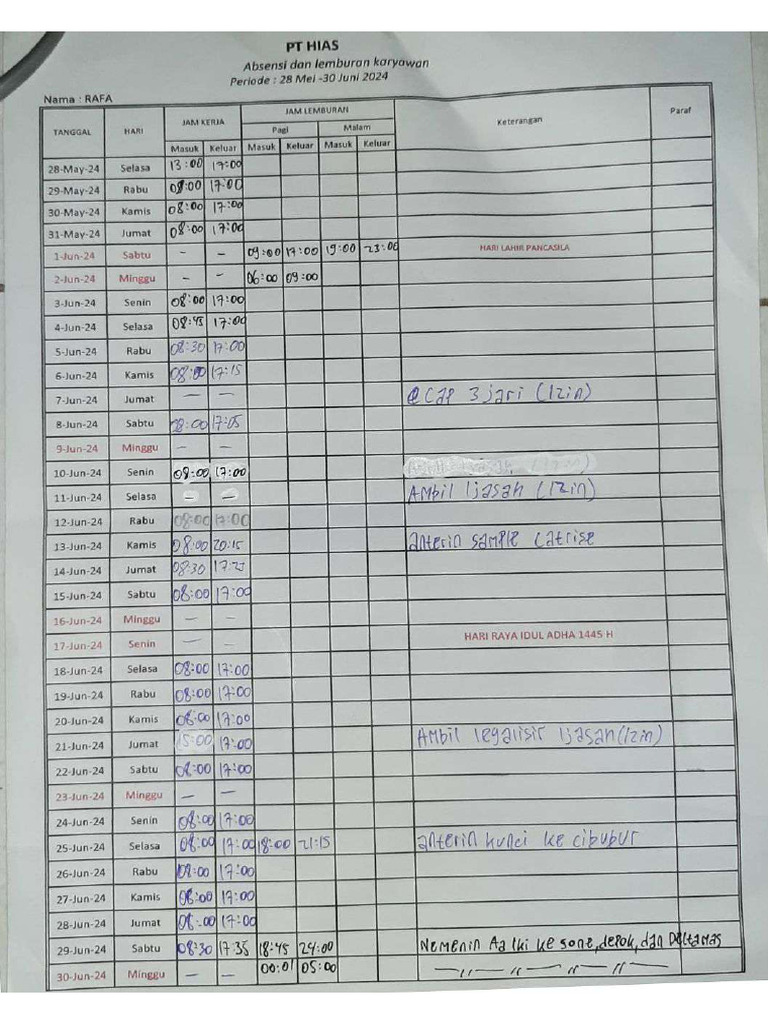 PT HIAS
Absensi dan lemburan karyawan
Periode : 28 Mei -30 Juni 2024
Nama : RAFA
TANGGAL HARI JAM KERJA JAM LEMBURAN Keterangan Paraf
Pagi Malam
Masuk Keluar Masuk Keluar Masuk Keluar
28-May-24 Selasa 13:00 17:00
29-May-24 Rabu 08:00 17:00
30-May-24 Kamis 08:00 17:00
31-May-24 Jumat 08:00 17:00
1-Jun-24 Sabtu - - 09:00 17:00 19:00 23:00 HARI LAHIR PANCASILA
2-Jun-24 Minggu - - 06:00 09:00
3-Jun-24 Senin 08:00 17:00
4-Jun-24 Selasa 08:45 17:00
5-Jun-24 Rabu 08:30 17:00
6-Jun-24 Kamis 08:00 17:15
7-Jun-24 Jumat - - CAP 3 jari (Izin)
8-Jun-24 Sabtu 17:05
9-Jun-24 Minggu - -
10-Jun-24 Senin 08:00 17:00
11-Jun-24 Selasa - - AMbil Ijasah (Izin)
12-Jun-24 Rabu 08:00 17:00
13-Jun-24 Kamis 08:00 20:15 anterin sample Catrise
14-Jun-24 Jumat 08:30
15-Jun-24 Sabtu 08:00 17:00
16-Jun-24 Minggu - -
17-Jun-24 Senin - - HARI RAYA IDUL ADHA 1445 H
18-Jun-24 Selasa 08:00 17:00
19-Jun-24 Rabu 08:00 17:00
20-Jun-24 Kamis 08:00 17:00
21-Jun-24 Jumat 15:00 17:00 AMbil legalisir Ijasah (Izin)
22-Jun-24 Sabtu 08:00 17:00
23-Jun-24 Minggu - -
24-Jun-24 Senin 08:00 17:00
25-Jun-24 Selasa 08:00 17:00 18:00 21:15 anterin kunci ke cibubur
26-Jun-24 Rabu 08:00 17:00
27-Jun-24 Kamis 08:00 17:00
28-Jun-24 Jumat 08:00 17:00
29-Jun-24 Sabtu 08:30 17:35 18:45 24:00 Nemenin Aa Iki ke sone, depok, dan Deltamas
30-Jun-24 Minggu - - 00:01 05:00 —〃—〃—〃—〃—